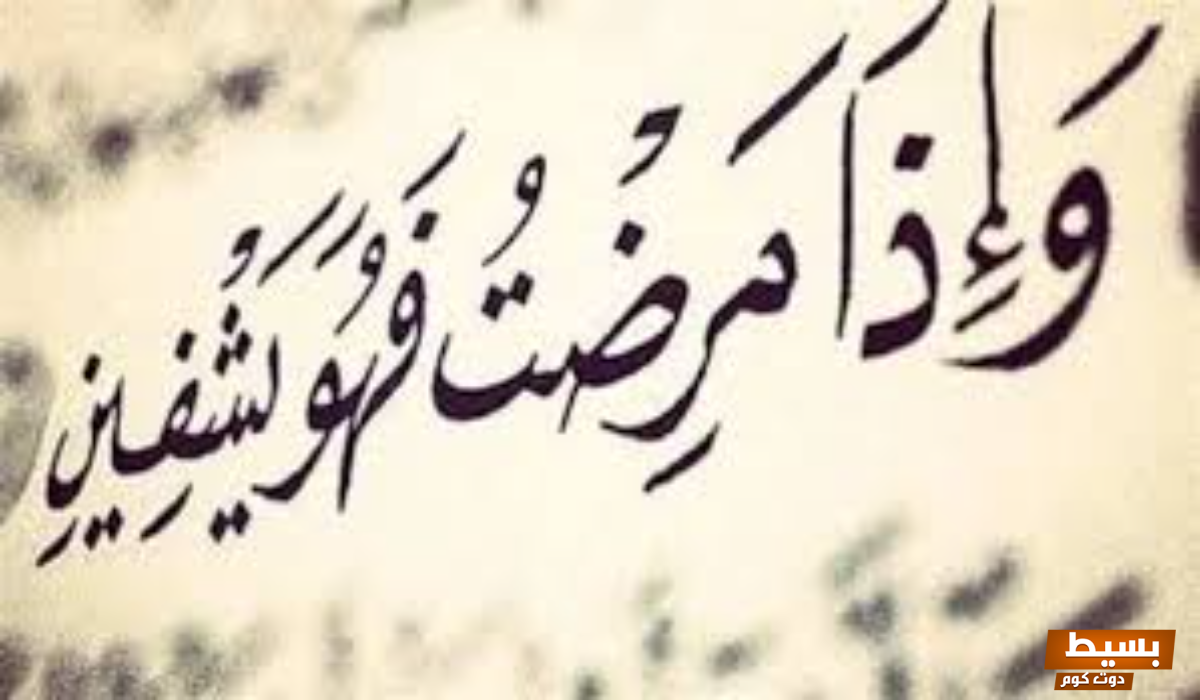 وَإِذَا مَرِضْتُ فَهُوَ يَشْفِينِ
بسيط
دوت كوم